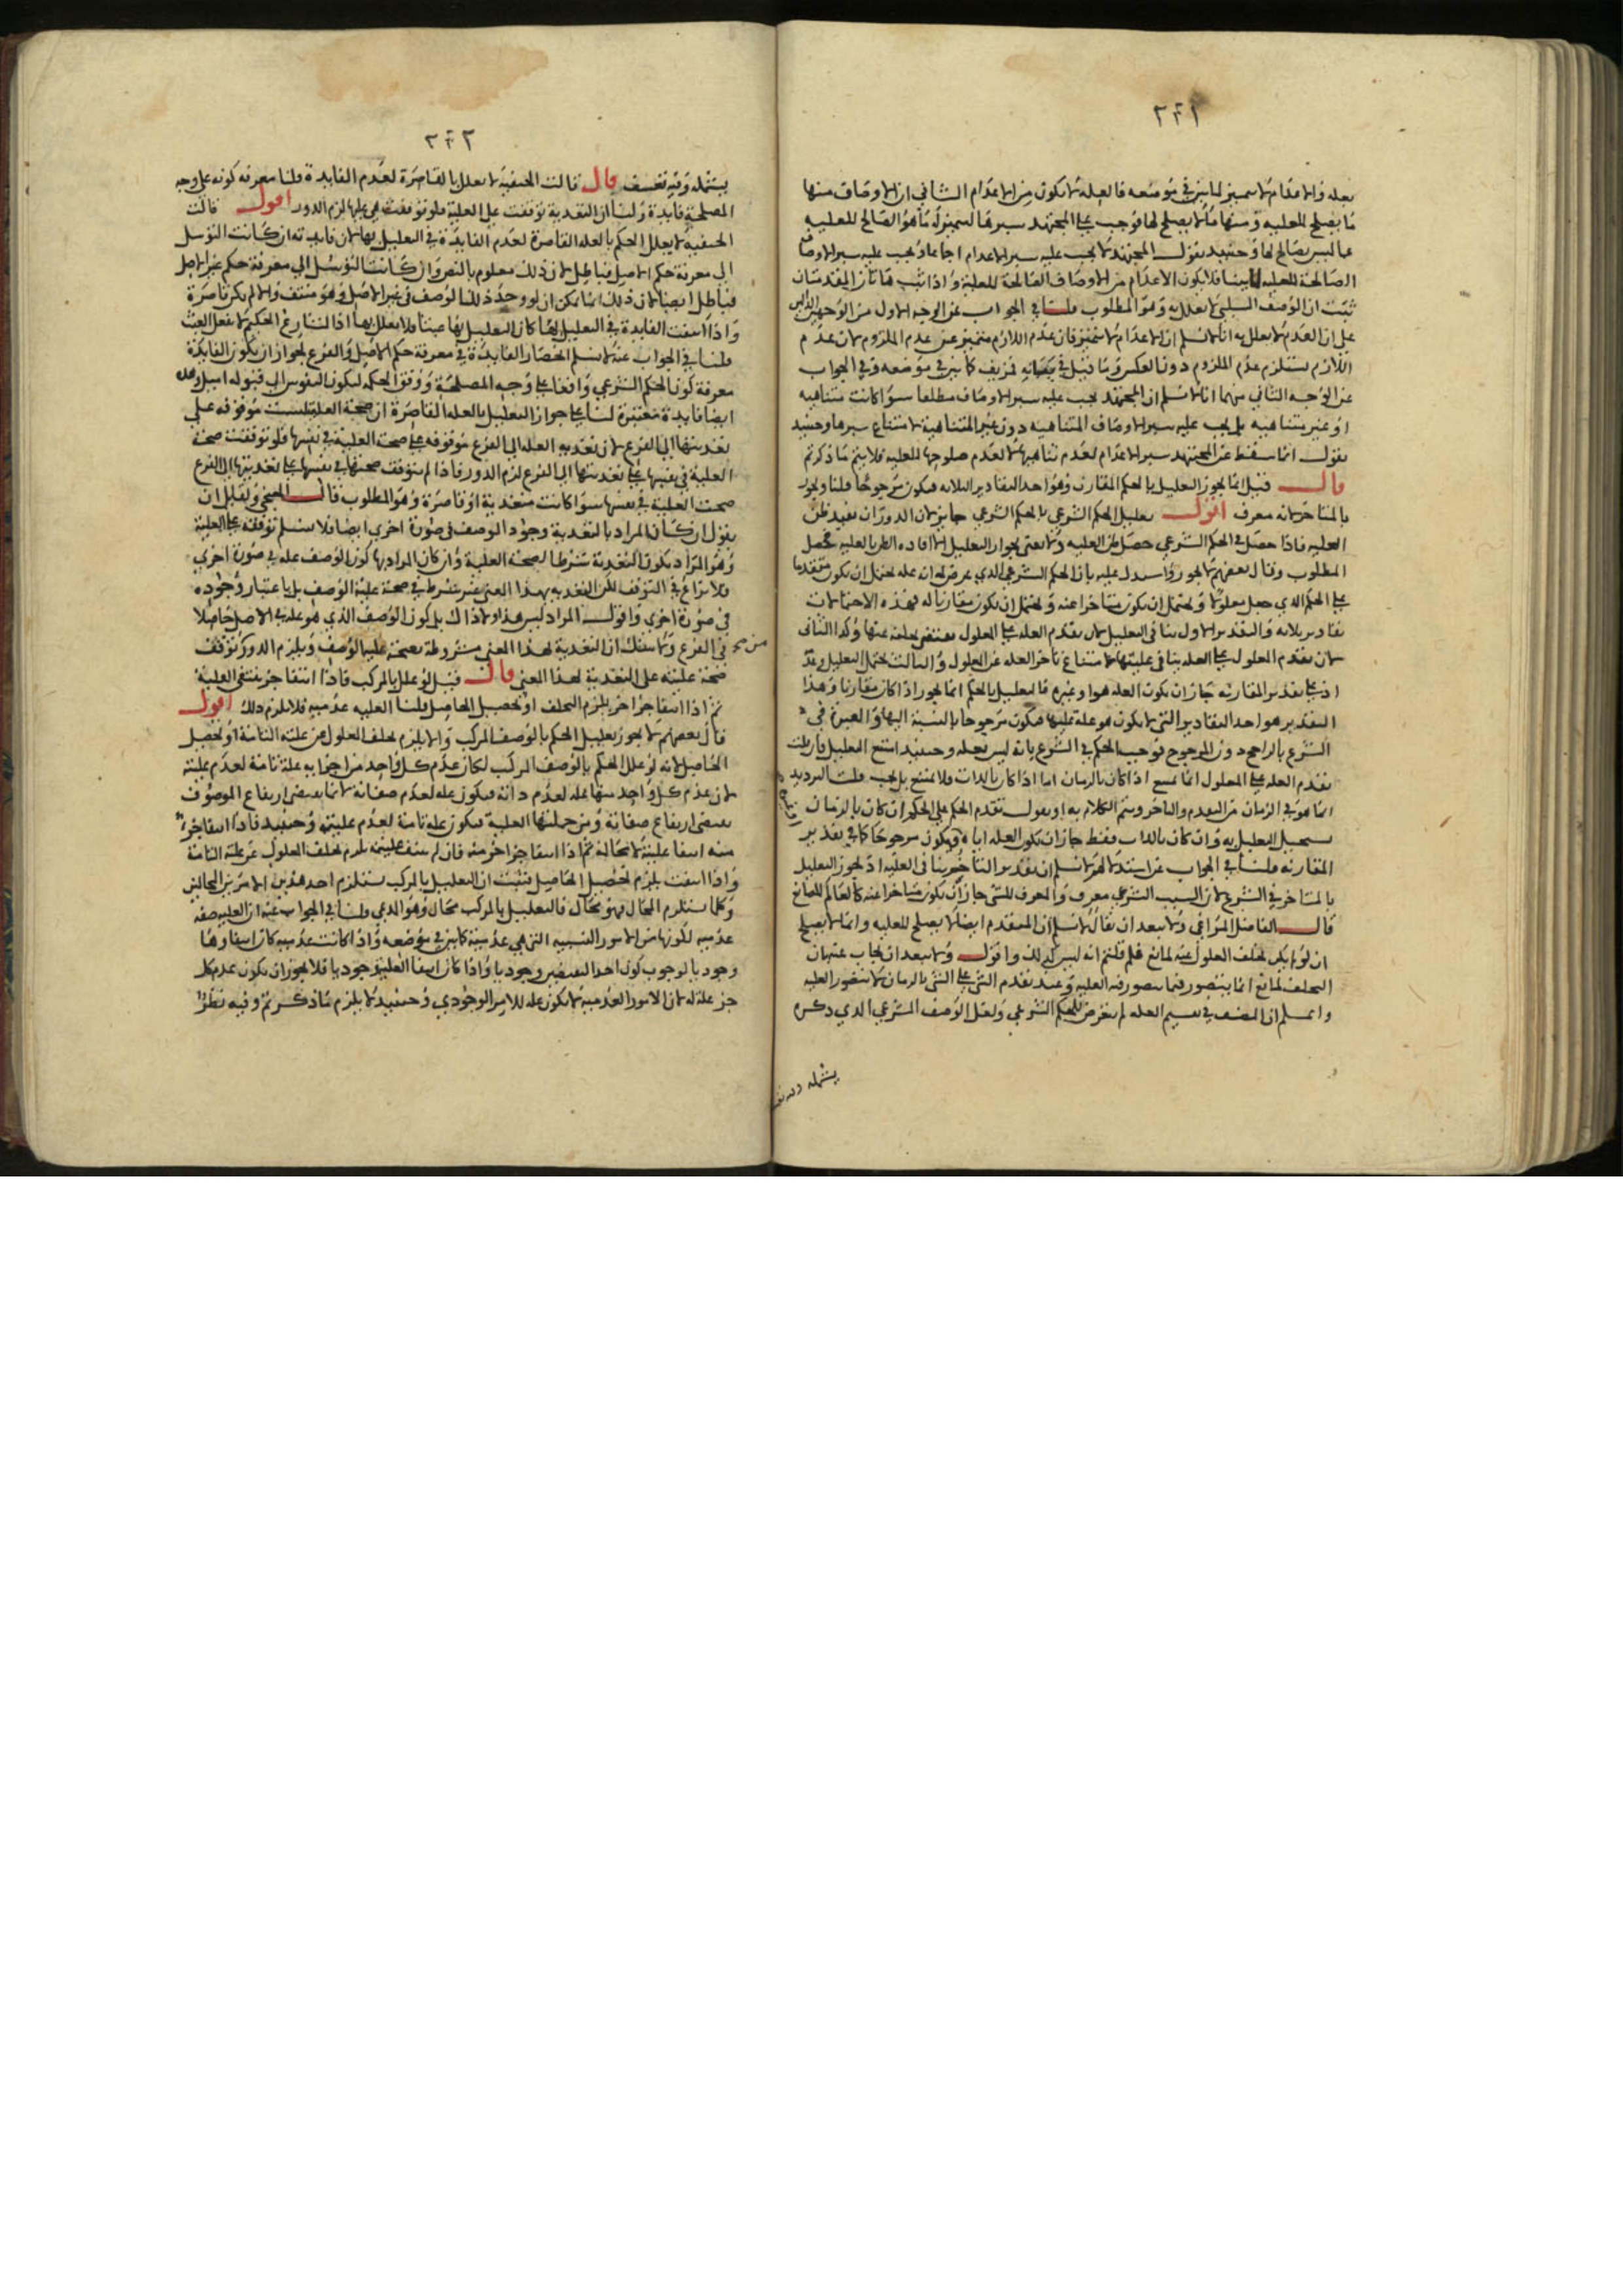 ٢٢١
بعله والاعدام لا تتميز لما بين في موضعه فالعله لا تكون من الاعدام الثاني ان الاوصاف منها
ما يصلح للعلية ومنها ما لا يصلح لها فوجب على المجتهد سبرها لتمييز له ما هو الصالح للعلية
عما ليس بصالح لها وحينئذ نقول المجتهد لا يجب عليه سبر الاعدام اجماعا ويجب عليه سبر الاوصاف
الصالحة للعلية فلا يكون الاعدام من الاوصاف الصالحة للعلية واذا ثبت هاتان المقدمتان
ثبت ان الوصف السلبي لا يعلل به وهو المطلوب قلنا في الجواب عن الوجه الاول من الوجهين الدالين
على ان العدم لا يعلل به انا لا نسلم ان الاعدام لا تتميز فان عدم اللازم متميز عن عدم الملزوم لان عدم
اللازم يستلزم عدم الملزوم دون العكس وما قيل في بيانه مزيف كما بين في موضعه وفي الجواب
عن الوجه الثاني منهما انا لا نسلم ان المجتهد يجب عليه سبر الاوصاف مطلقا سوا كانت متناهية
او غير متناهية بل يجب عليه سبر الاوصاف المتناهية دون غير المتناهية لامتناع سبرها وحينئذ
نقول انما سقط عن المجتهد سبر الاعدام لعدم تناهيها لا لعدم صلوحها للعلية فلا يتم ما ذكرتم
قال قيل انما يجوز التعليل بالحكم المقارن وهو احد التقادير الثلاثة فيكون مرجوحا قلنا ويجوز
بالمتاخر لانه معرف اقول تعليل الحكم الشرعي بالحكم الشرعي جايز لان الدوران يفيد ظن
العلية فاذا حصل في الحكم الشرعي حصل ظن العلية ولا يعنى بجواز التعليل الا افاده الظن بالعلية فحصل
المطلوب وقال بعضهم لا يجوز واستدل عليه بان الحكم الشرعي الذي عرض له انه عله يحتمل ان يكون متقدما
على الحكم الذي جعل معلولا ويحتمل ان يكون متاخرا عنه ويحتمل ان يكون مقارنا له فهذه الاحتمالات
تقادير ثلاثة والتقدير الاول ينافي التعليل لان تقدم العله على المعلول يقتضي تخلفه عنها وكذا الثاني
لان تقدم المعلول على العله ينافي عليتها لامتناع تاخر العله عن المعلول والثالث يحتمل التعليل وعدمه
اذ على تقدير المقارنة جاز ان يكون العله هو او غيره فالتعليل بالحكم انما يجوز اذا كان مقارنا وهذا
التقدير هو احد التقادير التي لا يكون هو علة عليها فيكون مرجوحا بالنسبة اليها والعبرة في
الشرع بالراجح دون المرجوح فوجب الحكم في الشرع بانه ليس بعله وحينئذ امتنع التعليل فان قلت
تقدم العله على المعلول انما يمتنع اذا كان بالزمان اما اذا كان بالذات فلا يمتنع بل يجب قلت الترديد
انما هو في الزمان من التقدم والتاخر ويتم الكلام به او نقول تقدم الحكم على الحكم ان كان بالزمان
يستحيل التعليل به وان كان بالذات فقط جاز ان يكون العله اياه ويكون مرجوحا كما في تقدير
المقارنة قلنا في الجواب عن استدلالهم لا نسلم ان تقدير التاخر ينافي العلية اذ يجوز التعليل
بالمتاخر في الشرع لان السبب الشرعي معرف والمعرف للشي جاز ان يكون متاخرا عنه كالعالم للصانع
قال الفاضل المراغي ولا يبعد ان يقال لا نسلم ان المتقدم ايضا لا يصلح للعلية وانما لا يصلح
ان لو لم يكن تخلف المعلول عنه لمانع فلم قلتم انه ليس كذلك واقول ولا يبعد ان يجاب عنه بان
التخلف لمانع انما يتصور فيما يتصور فيه العلية وعند تقدم الشي على الشي بالزمان لا يتصور العلية
واعلم ان المصنف في تقسيم العله لم يتعرض للحكم الشرعي ولعل الوصف الشرعي الذي ذكره
يشمله وفيه تعسف
٢٢٢
يشمله وفيه تعسف قال قالت الحنفية لا يعلل بالقاصرة لعدم الفايدة قلنا معرفة كونه على وجه
المصلحة فايدة ولنا ان التعدية توقفت على العلية فلو توقفت هي عليها لزم الدور اقول قالت
الحنفية لا يعلل الحكم بالعله القاصرة لعدم الفايدة في التعليل بها لان فايدته ان كانت التوسل
الى معرفة حكم الاصل فباطل لان ذلك معلوم بالنص وان كانت التوسل الى معرفة حكم غير الاصل
فباطل ايضا لان ذلك انما يمكن ان لو وجد ذلك الوصف في غير الاصل وهو منتف والا لم يكن قاصرة
واذا انتفت الفايدة في التعليل بها كان التعليل بها عبثا فلا يعلل بها اذ الشارع الحكيم لا يفعل العبث
قلنا في الجواب عنه لا نسلم انحصار الفايدة في معرفة حكم الاصل والفرع لجواز ان يكون الفايدة
معرفة كون الحكم الشرعي واقعا على وجه المصلحة ووفق الحكمه ليكون النفوس الى قبوله اميل وهذه
ايضا فايدة معتبرة لنا على جواز التعليل بالعله القاصرة ان صحة العلية ليست موقوفه على
تعديتها الى الفرع لان تعدية العله الى الفرع موقوفه على صحة العلية في نفسها فلو توقفت صحة
العلية في نفسها على تعديتها الى الفرع لزم الدور فاذا لم يتوقف صحتها في نفسها على تعديتها الى الفرع
صحت العلية في نفسها سوا كانت متعدية او قاصرة وهو المطلوب قال الخنجي ولقايل ان
يقول ان كان المراد بالتعدية وجود الوصف في صورة اخرى ايضا فلا نسلم توقفه على العلية
وهو المراد بكون التعدية شرطا لصحة العلية وان كان المراد بها كون الوصف عله في صورة اخرى
فلا نزاع في التوقف لكن التعدية بهذا المعنى غير شرط في صحة علية الوصف بل باعتبار وجوده
في صورة اخرى واقول المراد ليس هذا ولا ذاك بل كون الوصف الذي هو عله في الاصل حاصلا
في الفرع ولا شك ان التعدية بهذا المعنى مشروطة بصحة علية الوصف ويلزم الدور من توقف
صحة عليته على التعدية بهذا المعنى قال قيل لو علل بالمركب فاذا انتفا جزء تنتفي العلية
ثم اذا انتفا جزء اخر يلزم التخلف او تحصيل الحاصل قلنا العلية عدمية فلا يلزم ذلك اقول
قال بعضهم لا يجوز تعليل الحكم بالوصف المركب والا يلزم تخلف المعلول عن علته التامة او تحصيل
الحاصل لانه لو علل الحكم بالوصف المركب لكان عدم كل واحد من اجزايه علة تامة لعدم عليته
لان عدم كل واحد منها عله لعدم ذاته فيكون عله لعدم صفاته لانتفا يقتضي ارتفاع الموصوف
يقتضي ارتفاع صفاته ومن جملتها العلية فيكون علة تامة لعدم عليته وحينئذ فاذا انتفا جزء
منه انتفا عليته لا محالة ثم اذا انتفا جزء اخر منه فان لم ينتف عليته يلزم تخلف المعلول عن علته التامة
واذا انتفت يلزم تحصيل الحاصل فثبت ان التعليل بالمركب يستلزم احد هذين الامرين المحالين
وكلما يستلزم المحال فهو محال فالتعليل بالمركب محال وهو المدعى قلنا في الجواب عنه ان العلية صفة
عدمية لكونها من الامور النسبية التي هي عدمية كما بين في موضعه واذا كانت عدمية كان انتفاوها
وجوديا لوجوب كون احد النقيضين وجوديا واذا كان انتفا العلية وجوديا فلا يجوز ان يكون عدم كل
جزء علة له لان الامور العدمية لا يكون عله للامر الوجودي وحينئذ لا يلزم ما ذكرتم وفيه نظر